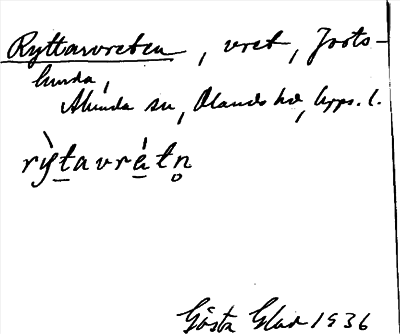 Ryttarvreten, vret, Jorts-
lunda,
Alunda sn, Olands hd, Upps. l.
rỳt̲avré̲tn̥
Gösta Glad 1936